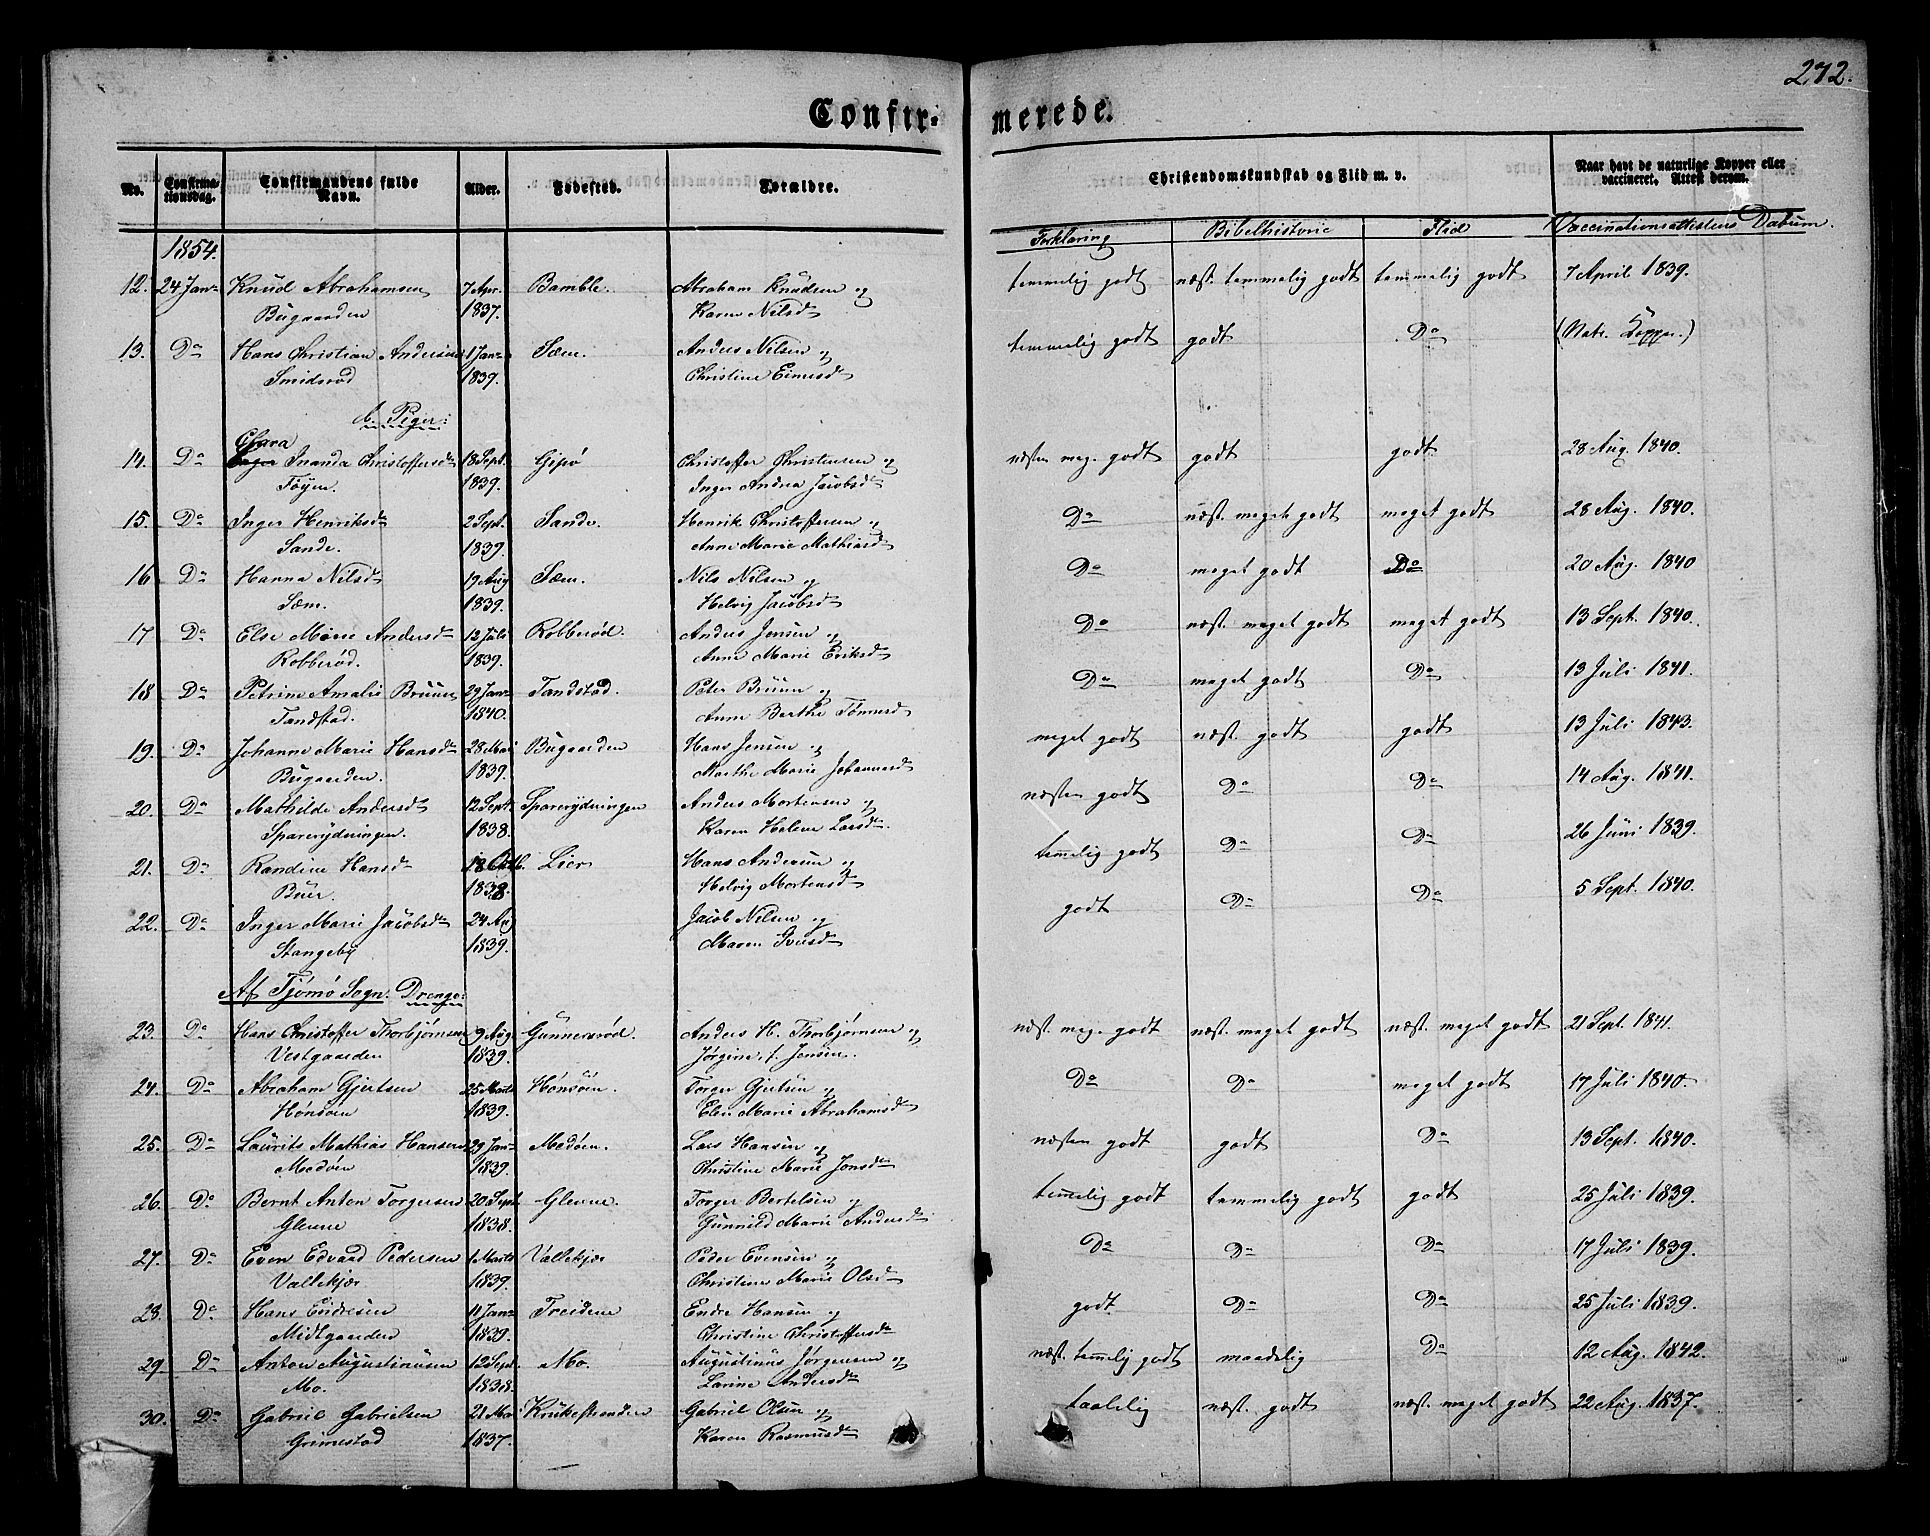 272.
Confir- merede.
No. Confirmationsdag. Confirmandens fulde Navn. Alder. Fødested. Forældre. Christendomskundskab og Flid m. v. Naar havt de naturlige Kopper eller vaccineret. Attest derom.
1854. Forklaring Bibelhistorie Flid Vaccinationsattestens Datum.
12. 24 Jan. Knud Abrahamsen 7 Apr. Bamble. Abraham Knudsen og temmelig godt næst. temmelig godt temmelig godt 7 April 1839.
Bugaarden 1837. Karen Nilsd
13. Do Hans Christian Andersen 1 Jan. Sæm. Anders Nilsen og temmelig godt godt Do (Nat. Kopper.)
Smidsrød 1839. Christine Einersd
b. Piger:
Clara
14. Do Inanda Christoffersd 18 Sept. Gipø Christoffer Christensen og næsten meg. godt godt godt 28 Aug. 1840.
Føyen 1839. Inger Andrea Jacobsd
15. Do Inger Henriksd 2 Sept. Sande. Henrik Christoffersen og Do næst. meget godt meget godt 28 Aug. 1840.
Sande. 1839. Anne Marie Mathiasd
16 Do Hanna Nilsd 19 Aug Sæm. Nils Nilsen og Do meget godt Do 20 Aug. 1840
Sæm. 1839. Helvig Jacobsd
17 Do Else Marie Andersd 12 Juli Robberød. Anders Jensen og Do næst. meget godt meget godt 13 Sept. 1840.
Robberød. 1839. Anne Marie Eriksd
18 Do Petrine Amalie Bruun 29 Jan. Tandstad. Peter Bruun og Do meget godt Do 13 Juli 1841.
Tandstad. 1840. Anne Berthe Tønnesd
19. Do Johanne Marie Hansd 28 Mai Bugaarden Hans Jensen og meget godt næst. godt godt 13 Juli 1843.
Bugaarden. 1839. Marthe Marie Johannesd
20. Do Mathilde Andersd 12 Sept. Sparerydningen Anders Mortensen og næsten godt Do Do 14 Aug. 1841.
Sparerydningen. 1838. Karen Helene Larsd
21. Do Randine Hansd 18 Octb. Lier Hans Andersen og temmelig godt Do Do 26 Juni 1839.
Buer. 1838. Helvig Mortensd
22. Do Inger Marie Jacobsd 24 Aug Jacob Nilsen og godt Do Do 5 Sept. 1840.
Stangeby 1839. Maren Iversd
Af Tjømø Sogn. Drenge:
23. Do Hans Christoffer Thorbjørnsen 9 Aug. Gunnersrød. Anders H. Thorbjørnsen og næst. meg. godt næst. meget godt næst. meget godt 21 Sept. 1841.
Vestgaarden 1839. Jørgine f. Jensen.
24. Do Abraham Gjertsen 25 Marts Hønsøen. Torger Gjertsen og Do Do meget godt 17 Juli 1840.
Hønsøen 1839. Elen Marie Abrahamsd
25. Do Laurits Mathias Hansen 29 Jan. Medøen. Lars Hansen og næsten godt godt Do 13 Sept. 1840.
Medøen 1839. Christine Marie Jonsd
26. Do Bernt Anton Torgersen 20 Sept. Glenne. Torger Bertelsen og temmelig godt temmelig godt godt 25 Juli 1839.
Glenne 1838. Gunnild Marie Andersd
27. Do Even Edvard Pedersen 1 Marts Vallekjær Peder Evensen og Do Do Do 17 Juli 1839.
Vallekjær 1839. Christine Marie Olsd
28. Do Hans Endresen 11 Jan. Treidene Endre Hansen og godt Do Do 25 Juli 1839.
Midtgaarden 1839. Christine Christoffersd
29. Do Anton Augustinusen 12 Sept. Mo. Augustinus Jørgensen og næst. temmelig godt maadelig Do 12 Aug. 1842.
Mo. 1838. Larine Andersd
30. Do Gabriel Gabrielsen 21 Mai Krukestranden Gabriel Olsen og taalelig næst. godt næst. meget godt 22 Aug. 1837.
Grimestad 1837. Karen Rasmusd